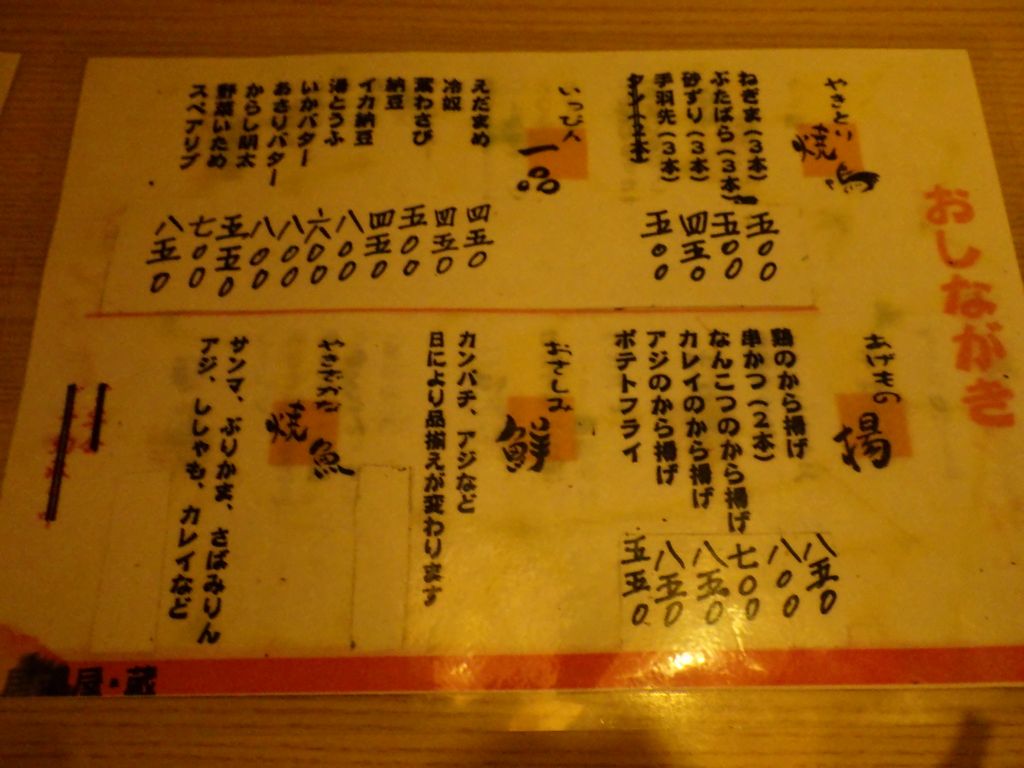 おしながき
やきとり
焼鳥
ねぎま(3本) 五〇〇
ぶたばら(3本) 五〇〇
砂ずり(3本) 四五〇
手羽先(3本) 五〇〇
いっぴん
一品
えだまめ 四五〇
冷奴 四五〇
葉わさび 五〇〇
納豆 四五〇
イカ納豆 八〇〇
湯どうふ 六〇〇
いかバター 八〇〇
あさりバター 八〇〇
からし明太 五五〇
野菜いため 七〇〇
スペアリブ 八五〇
あげもの
揚
鶏のから揚げ 八五〇
串かつ(2本) 八〇〇
なんこつのから揚げ 七〇〇
カレイのから揚げ 八五〇
アジのから揚げ 八五〇
ポテトフライ 五五〇
おさしみ
鮮
カンパチ、アジなど
日により品揃えが変わります
やきざかな
焼魚
サンマ、ぶりかま、さばみりん
アジ、ししゃも、カレイなど
屋・蔵